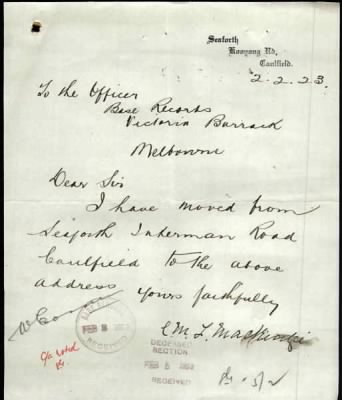 Seaforth
Kooyong Rd,
Caulfield.
2.2.23.
To the Officer
Base Records
Victoria Barrack
Melbourne
Dear Sir
I have moved from
Seaforth Inkerman Road
Caulfield to the above
address
Yours faithfully
C M. L. MacKinlzi
DECEASED
SECTION
FEB 5 1923
RECEIVED
FEB 3 1923
C/A noted